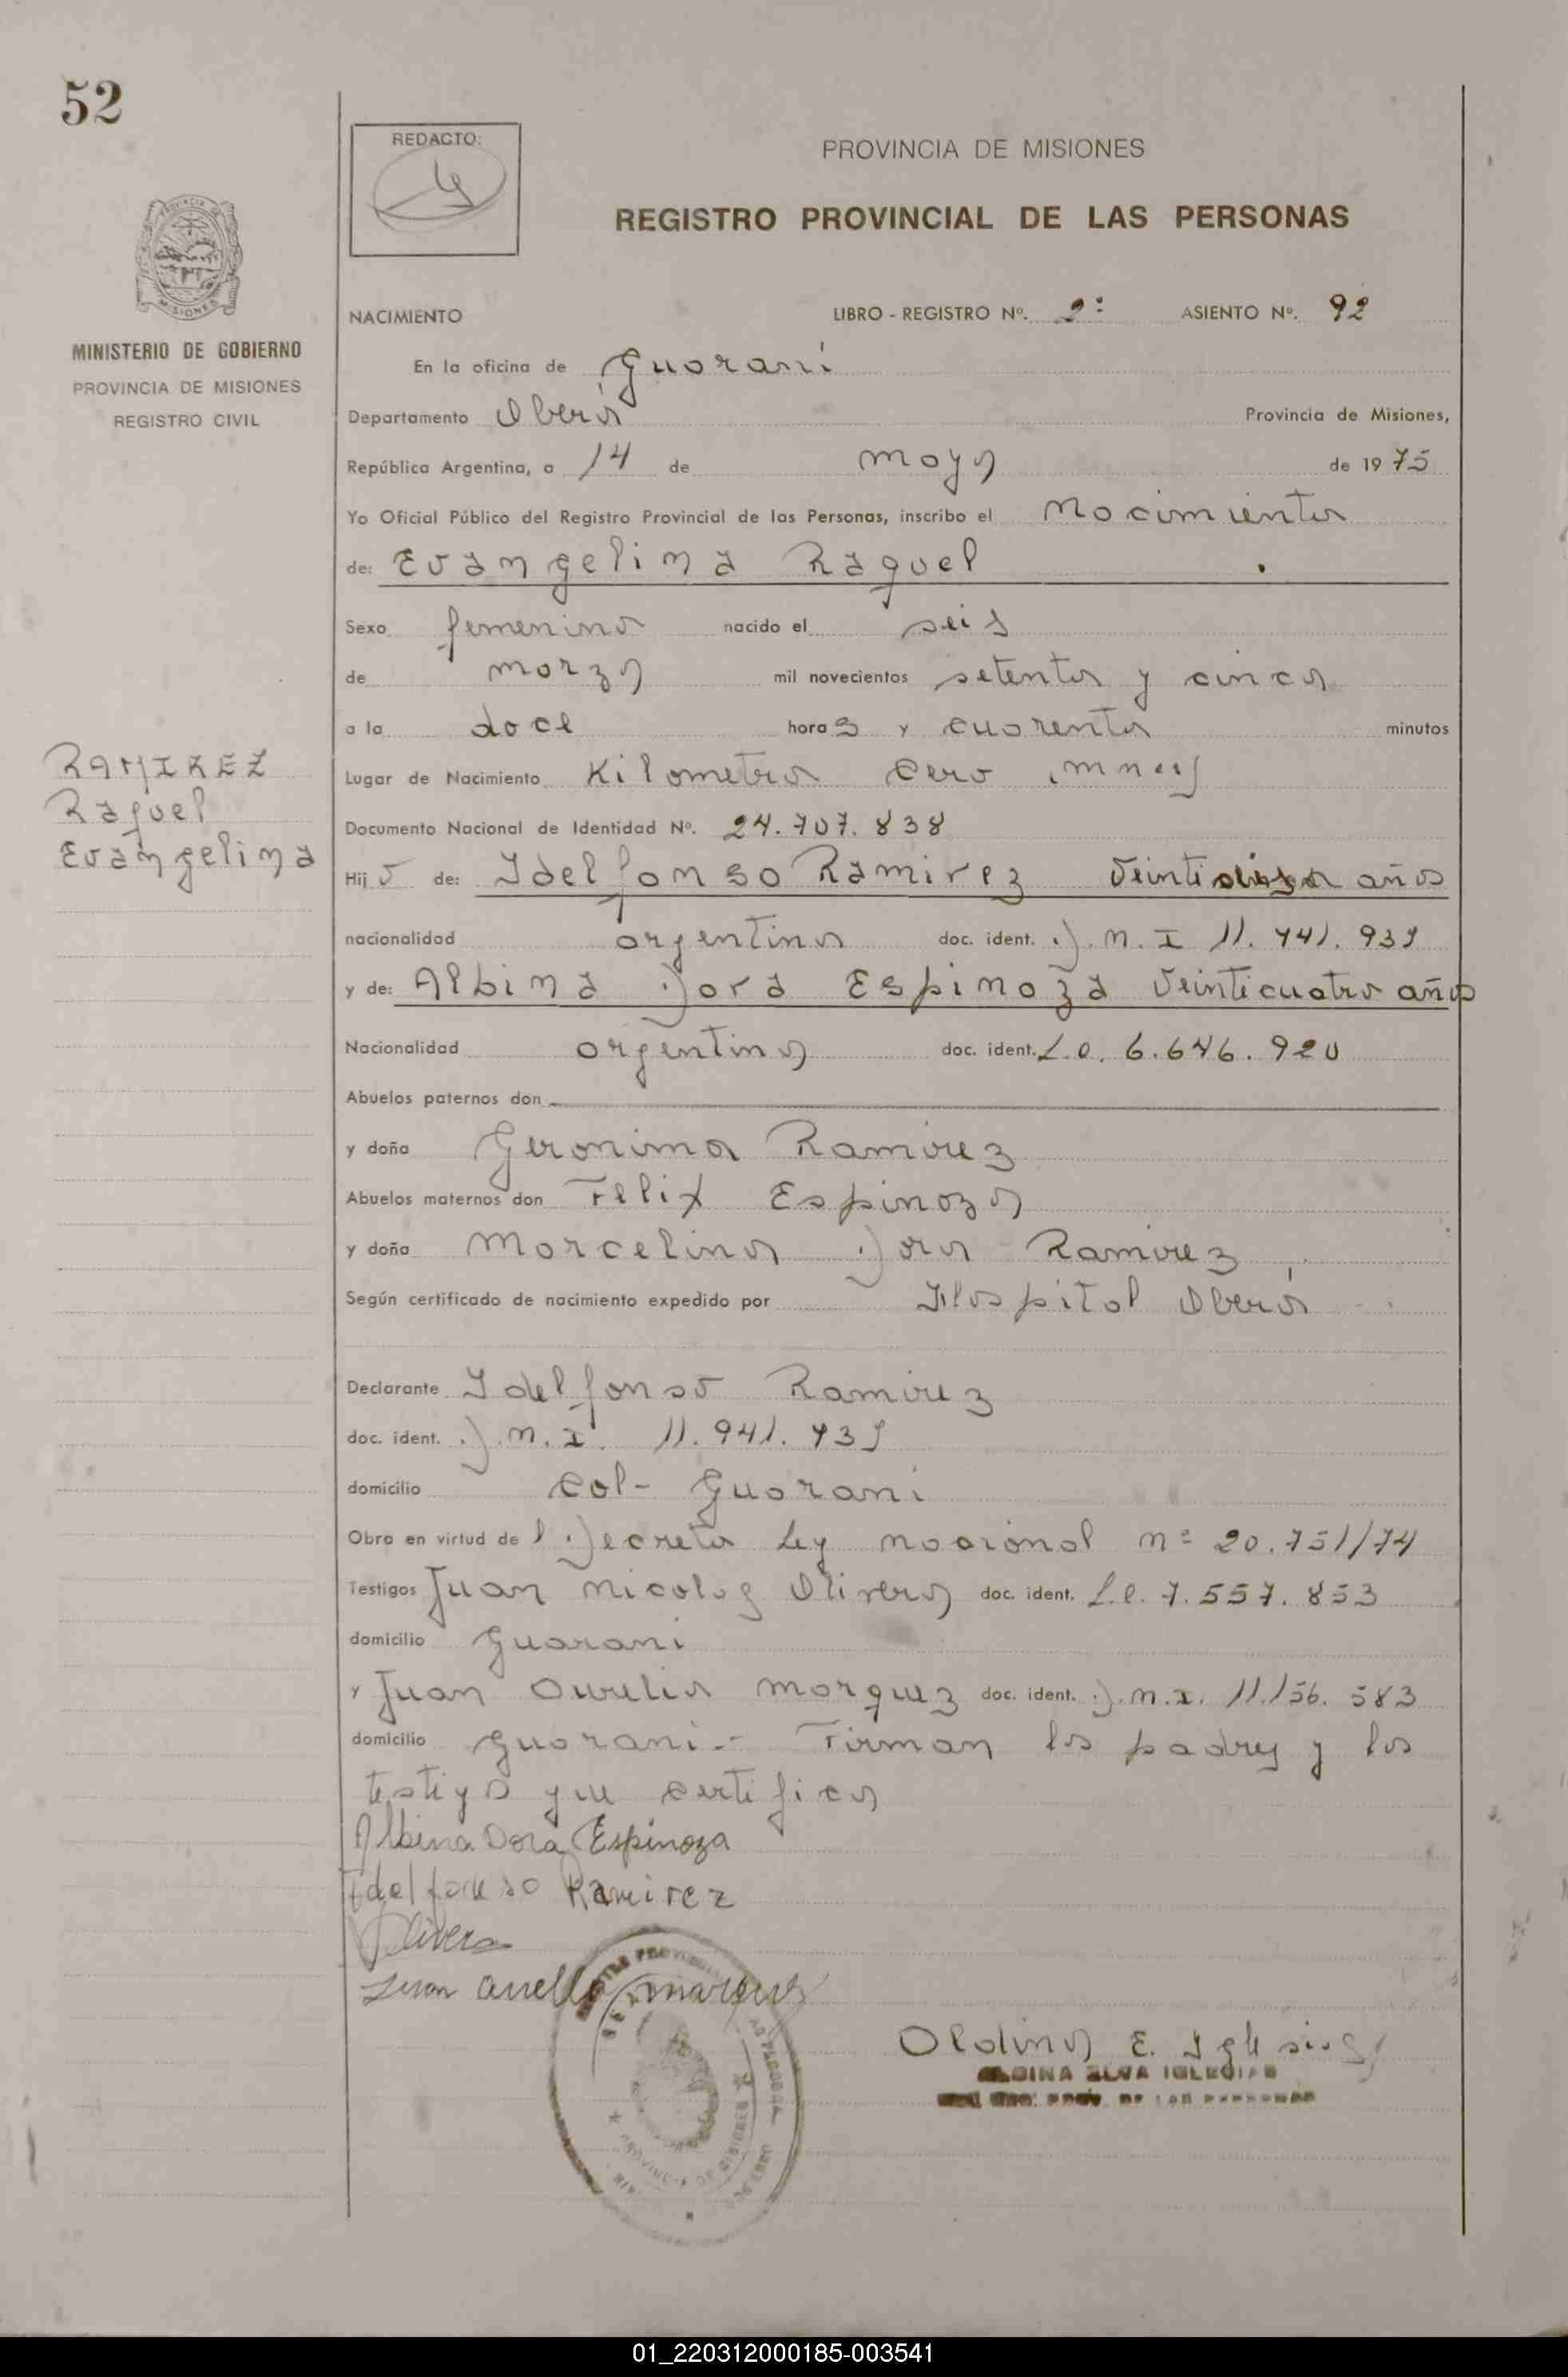 52
REDACTO:
PROVINCIA DE MISIONES
REGISTRO PROVINCIAL DE LAS PERSONAS
MINISTERIO DE GOBIERNO
PROVINCIA DE MISIONES
REGISTRO CIVIL
RAMIREZ
Raquel
Evangelina
NACIMIENTO LIBRO - REGISTRO Nº. 2º ASIENTO Nº. 92
En la oficina de Guaraní
Departamento Oberá Provincia de Misiones,
República Argentina, a 14 de mayo de 1975
Yo Oficial Público del Registro Provincial de las Personas, inscribo el Nacimiento
de: Evangelina Raquel
Sexo femenino nacido el seis
de marzo mil novecientos setenta y cinco
a la doce horas y cuarenta minutos
Lugar de Nacimiento Kilometro Cero
Documento Nacional de Identidad Nº. 24.707.838
Hij de: Idelfonso Ramirez años
nacionalidad argentina doc. ident. D.N.I 11.941.939
y de: Albina Dora Espinoza Veinticuatro años
Nacionalidad argentina doc. ident. L.C. 6.646.920
Abuelos paternos don
y doña Geronima Ramirez
Abuelos maternos don Felix Espinoza
y doña Marcelina Dora Ramirez
Según certificado de nacimiento expedido por Hospital Oberá
Declarante Idelfonso Ramirez
doc. ident. D.N.I. 11.941.939
domicilio Col- Guarani
Obra en virtud del Decreto Ley nacional nº 20.751/74
Testigos Juan Nicolas Olivera doc. ident. L.E. 7.557.853
domicilio Guarani
y Juan Aurelio Marquez doc. ident. D.N.I. 11.156.583
domicilio Guarani.- Firman los padres y los
testigos que certifico
Albina Dora Espinoza
Idelfonso Ramirez
Olivera
Juan Aurelio Marquez
Aldina E. Iglesias
ALDINA ELVA IGLESIAS
PROVINCIA DE MISIONES
01_220312000185-003541